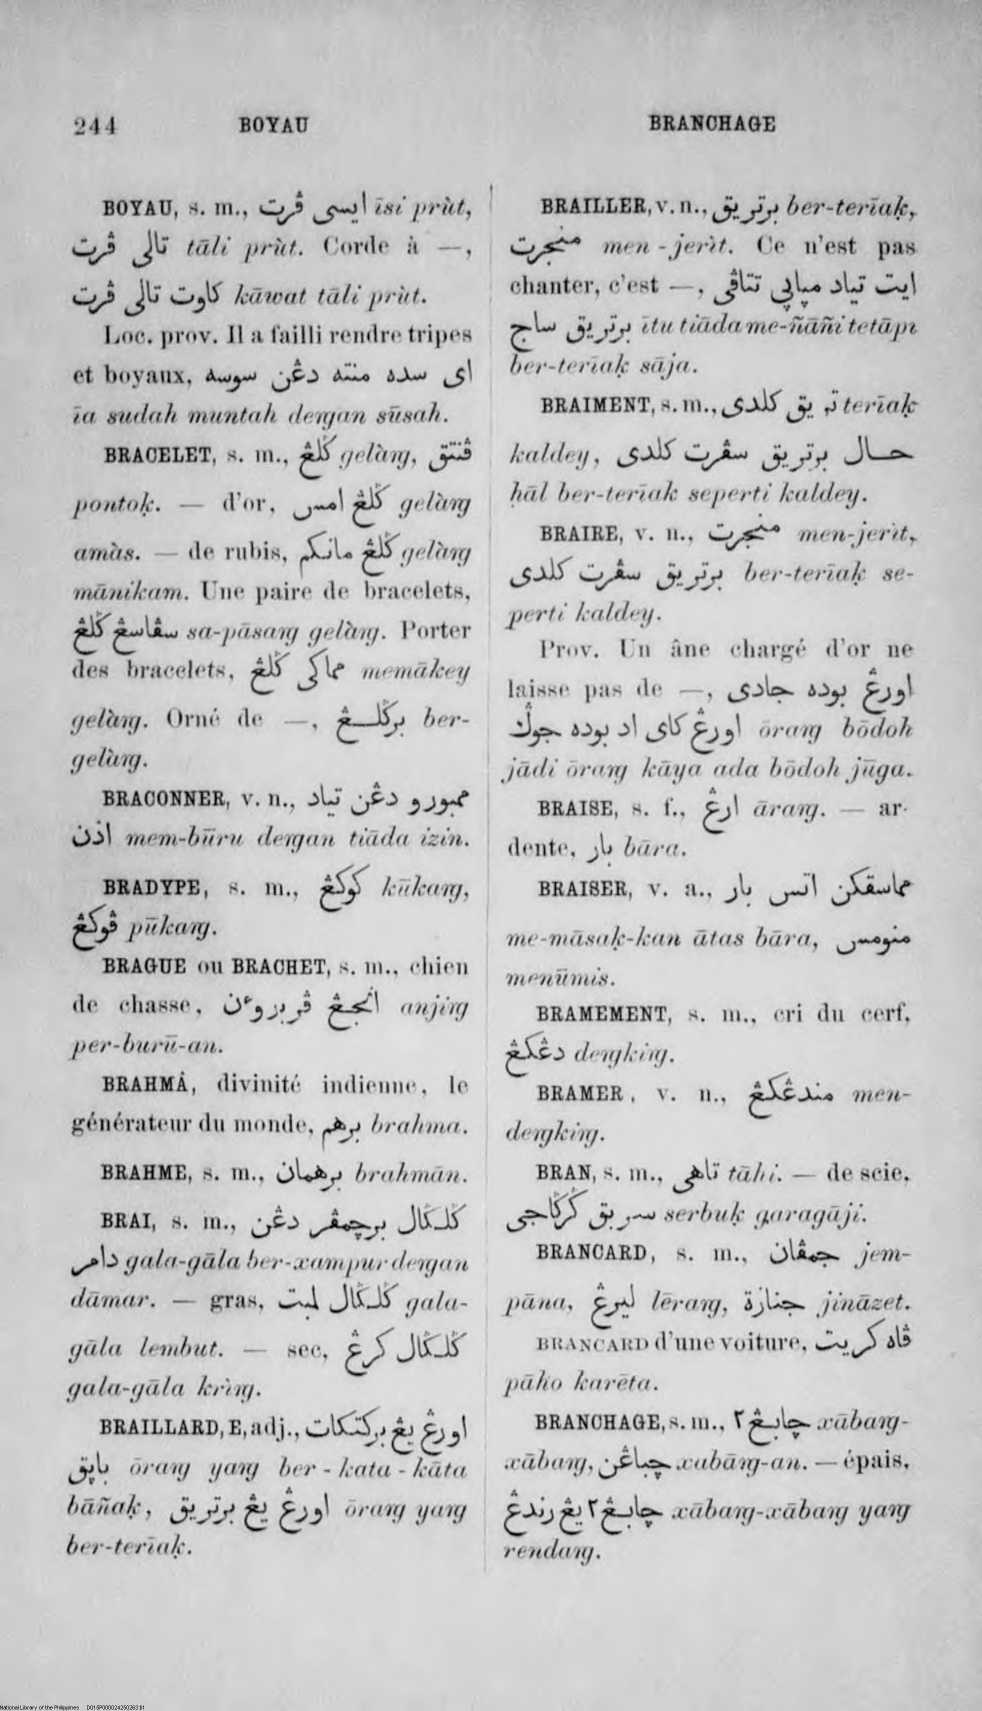 244 BOYAU BRANCHAGE
BOYAU, s. m., ايسى ڤرت īsi prùt,
تالى ڤرت tāli prùt. Corde à —,
كاوت تالى ڤرت kāwat tāli prùt.
Loc. prov. Il a failli rendre tripes
et boyaux, اى سده منته دڠن سوسه
īa sudah muntah deŋan sūsah.
BRACELET, s. m., ݢلڠ gelàŋ, ڤنتق
pontoḳ. — d'or, ݢلڠ امس gelàŋ
amàs. — de rubis, ݢلڠ مانكم gelàŋ
mānikam. Une paire de bracelets,
سڤاسڠ ݢلڠ sa-pāsaŋ gelàŋ. Porter
des bracelets, مماكى ݢلڠ memākey
gelàŋ. Orné de —, برݢلڠ ber-
gelàŋ.
BRACONNER, v. n., ممبورو دڠن تياد
اذن mem-būru deŋan tiāda izin.
BRADYPE, s. m., كوكڠ kūkaŋ,
ڤوكڠ pūkaŋ.
BRAGUE ou BRACHET, s. m., chien
de chasse, انجڠ ڤربروءن anjiŋ
per-burū-an.
BRAHMÂ, divinité indienne, le
générateur du monde, برهم brahma.
BRAHME, s. m., برهمان brahmān.
BRAI, s. m., ݢلݢال برچمڤر دڠن
دامر gala-gāla ber-xampur deŋan
dāmar. — gras, ݢلݢال لمبت gala-
gāla lembut. — sec, ݢلݢال كرڠ
gala-gāla krìŋ.
BRAILLARD, E, adj., اورڠ يڠ بركتكات
باپق ōraŋ yaŋ ber-kata-kāta
bāñaḳ, اورڠ يڠ برتريق ōraŋ yaŋ
ber-terīaḳ.
BRAILLER, v. n., برتريق ber-terīaḳ,
منجرت men-jerìt. Ce n'est pas
chanter, c'est —, ايت تياد مپاپى تتاڤى
برتريق ساج ītu tiāda me-ñāñi tetāpi
ber-terīaḳ sāja.
BRAIMENT, s. m., تريق كلدى terīaḳ
kaldey, حال برتريق سڤرت كلدى
ḥāl ber-terīak seperti kaldey.
BRAIRE, v. n., منجرت men-jerìt,
برتريق سڤرت كلدى ber-terīaḳ se-
perti kaldey.
Prov. Un âne chargé d'or ne
laisse pas de —, اورڠ بوده جادى
اورڠ كاى اد بوده جوݢ ōraŋ bōdoh
jādi ōraŋ kāya ada bōdoh jūga.
BRAISE, s. f., ارڠ āraŋ. — ar-
dente, بار bāra.
BRAISER, v. a., مماسقكن اتس بار
me-māsaḳ-kan ātas bāra, منومس
menūmis.
BRAMEMENT, s. m., cri du cerf,
دڠكڠ deŋkiŋ.
BRAMER, v. n., مندڠكڠ men-
deŋkiŋ.
BRAN, s. m., تاهى tāhi. — de scie,
سربق ݢرݢاجى serbuḳ garagāji.
BRANCARD, s. m., جمڤان jem-
pāna, ليرڠ lēraŋ, جنازة jināzet.
BRANCARD d'une voiture, ڤاه كريت
pāho karēta.
BRANCHAGE, s. m., چابڠ٢ xābaŋ-
xābaŋ, چباڠن xabāŋ-an. — épais,
چابڠ٢ يڠ رندڠ xābaŋ-xābaŋ yaŋ
rendaŋ.
National Library of the Philippines